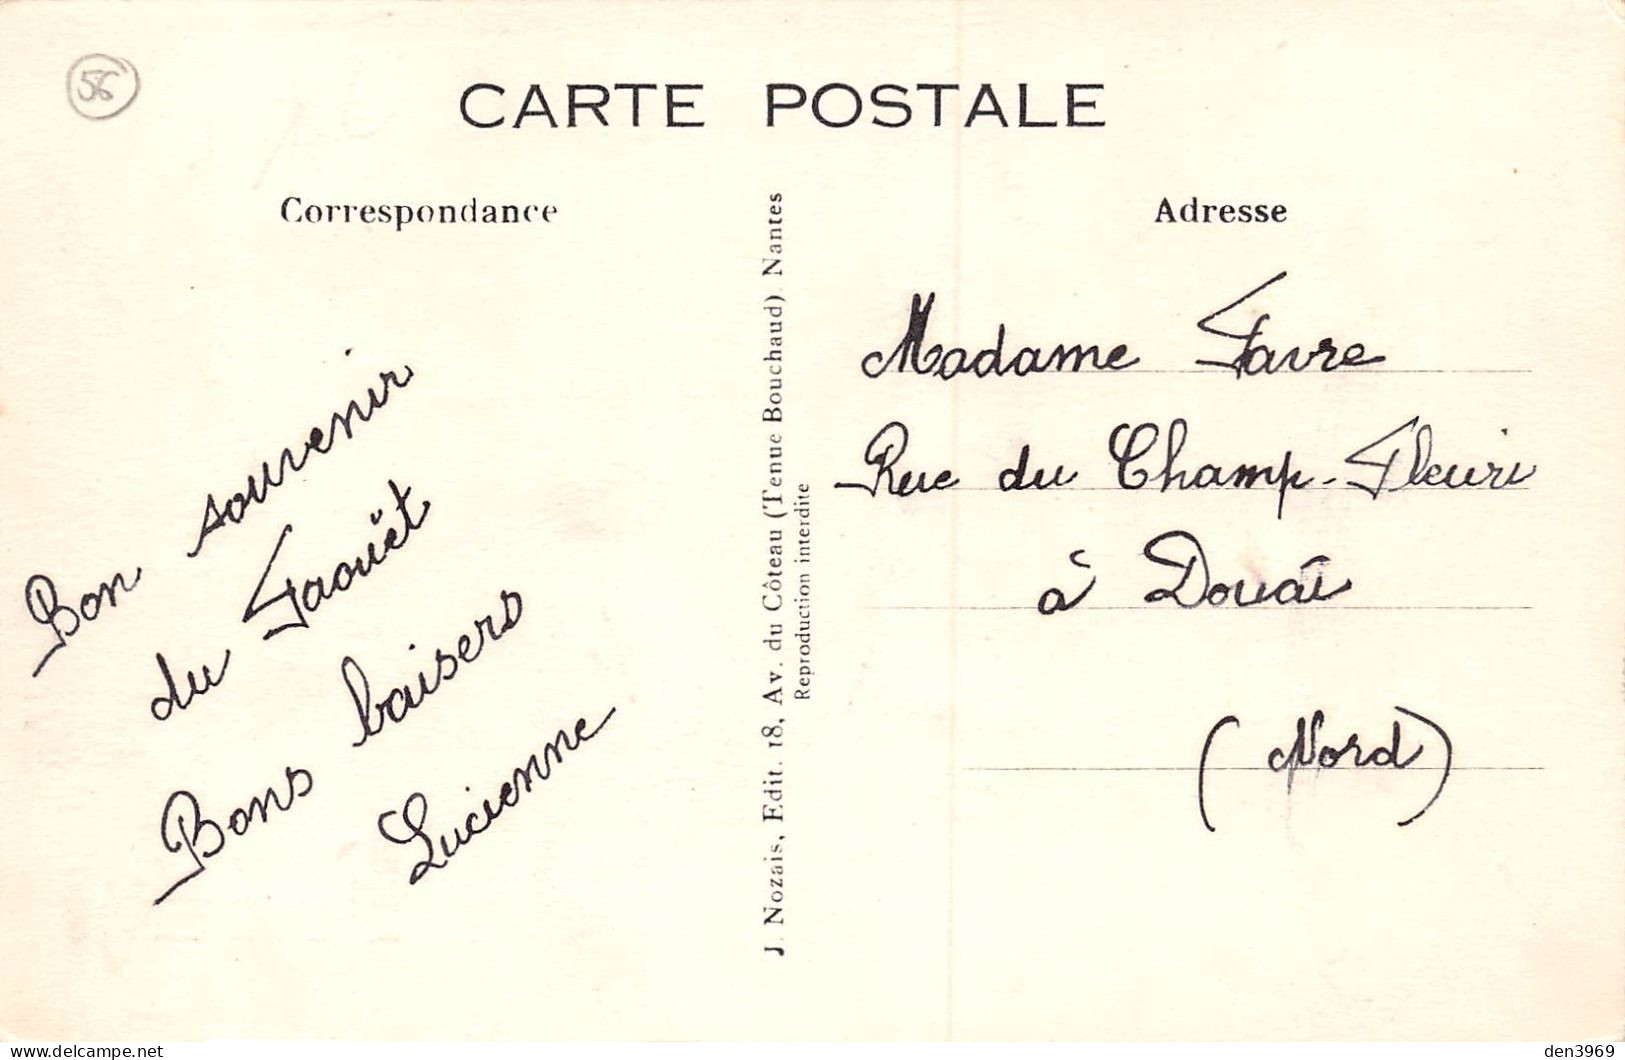 56
CARTE POSTALE
Correspondance
Adresse
Bon souvenir
du Faouët
Bons baisers
Lucienne
J. Nozais, Edit. 18, Av. du Côteau (Tenue Bouchaud). Nantes
Reproduction interdite
Madame Favre
Rue du Champ-Fleuri
à Douai
(Nord)
den3969